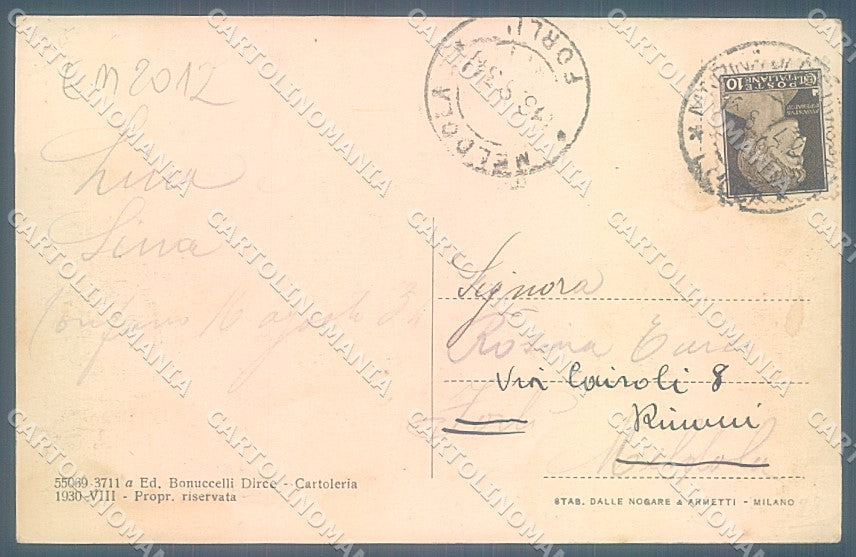 EM2012
Lina
Lina
16 agosto 34
MELDOLA * FORLI'
POSTE ITALIANE
10
Signora
Rosina
Via Cairoli 8
Forlì Rimini
Meldola
55069 3711 a Ed. Bonuccelli Dirce - Cartoleria
1930-VIII - Propr. riservata
STAB. DALLE NOGARE & ARMETTI - MILANO
CARTOLINOMANIA